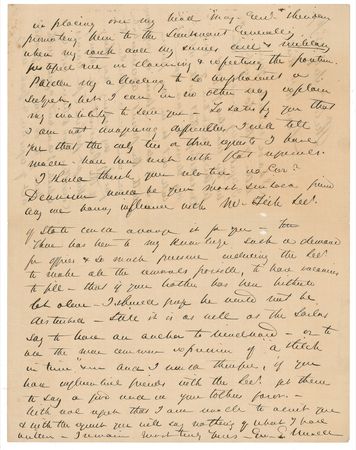 in placing over my head Maj. Genl. Sheridan
promoting him to the Lieutenant Generalcy
when my rank and my services civil & military
justified me in claiming & expecting the position.
Pardon my alluding to so unpleasant a
subject, but I can in no other way explain
my inability to serve you - To satisfy you that
I am not imagining difficulties I will tell
you that the only two or three requests I have
made have been met with flat refusals.
I should think your relative
Dennison would be your most
having influence with Mr. Fish Secy.
of State could arrange it for you -
There has been to my knowledge such a demand
for offices & so much pressure inducing the Secy
to make all the removals possible, to have vacancies
to fill - that if your brother has been hitherto
let alone - I should judge he would not be
disturbed - Still it is as well as the sailors
say to have an anchor to windward - or to
use the more common expression of a stitch
in time &c and I would therefore, if you
have influential friends with the Secy get them
to say a good word in your brothers favor. -
With regret that I am unable to assist you
& with the request you will say nothing of what I have
written - I remain most truly Yours - Geo. G. Meade